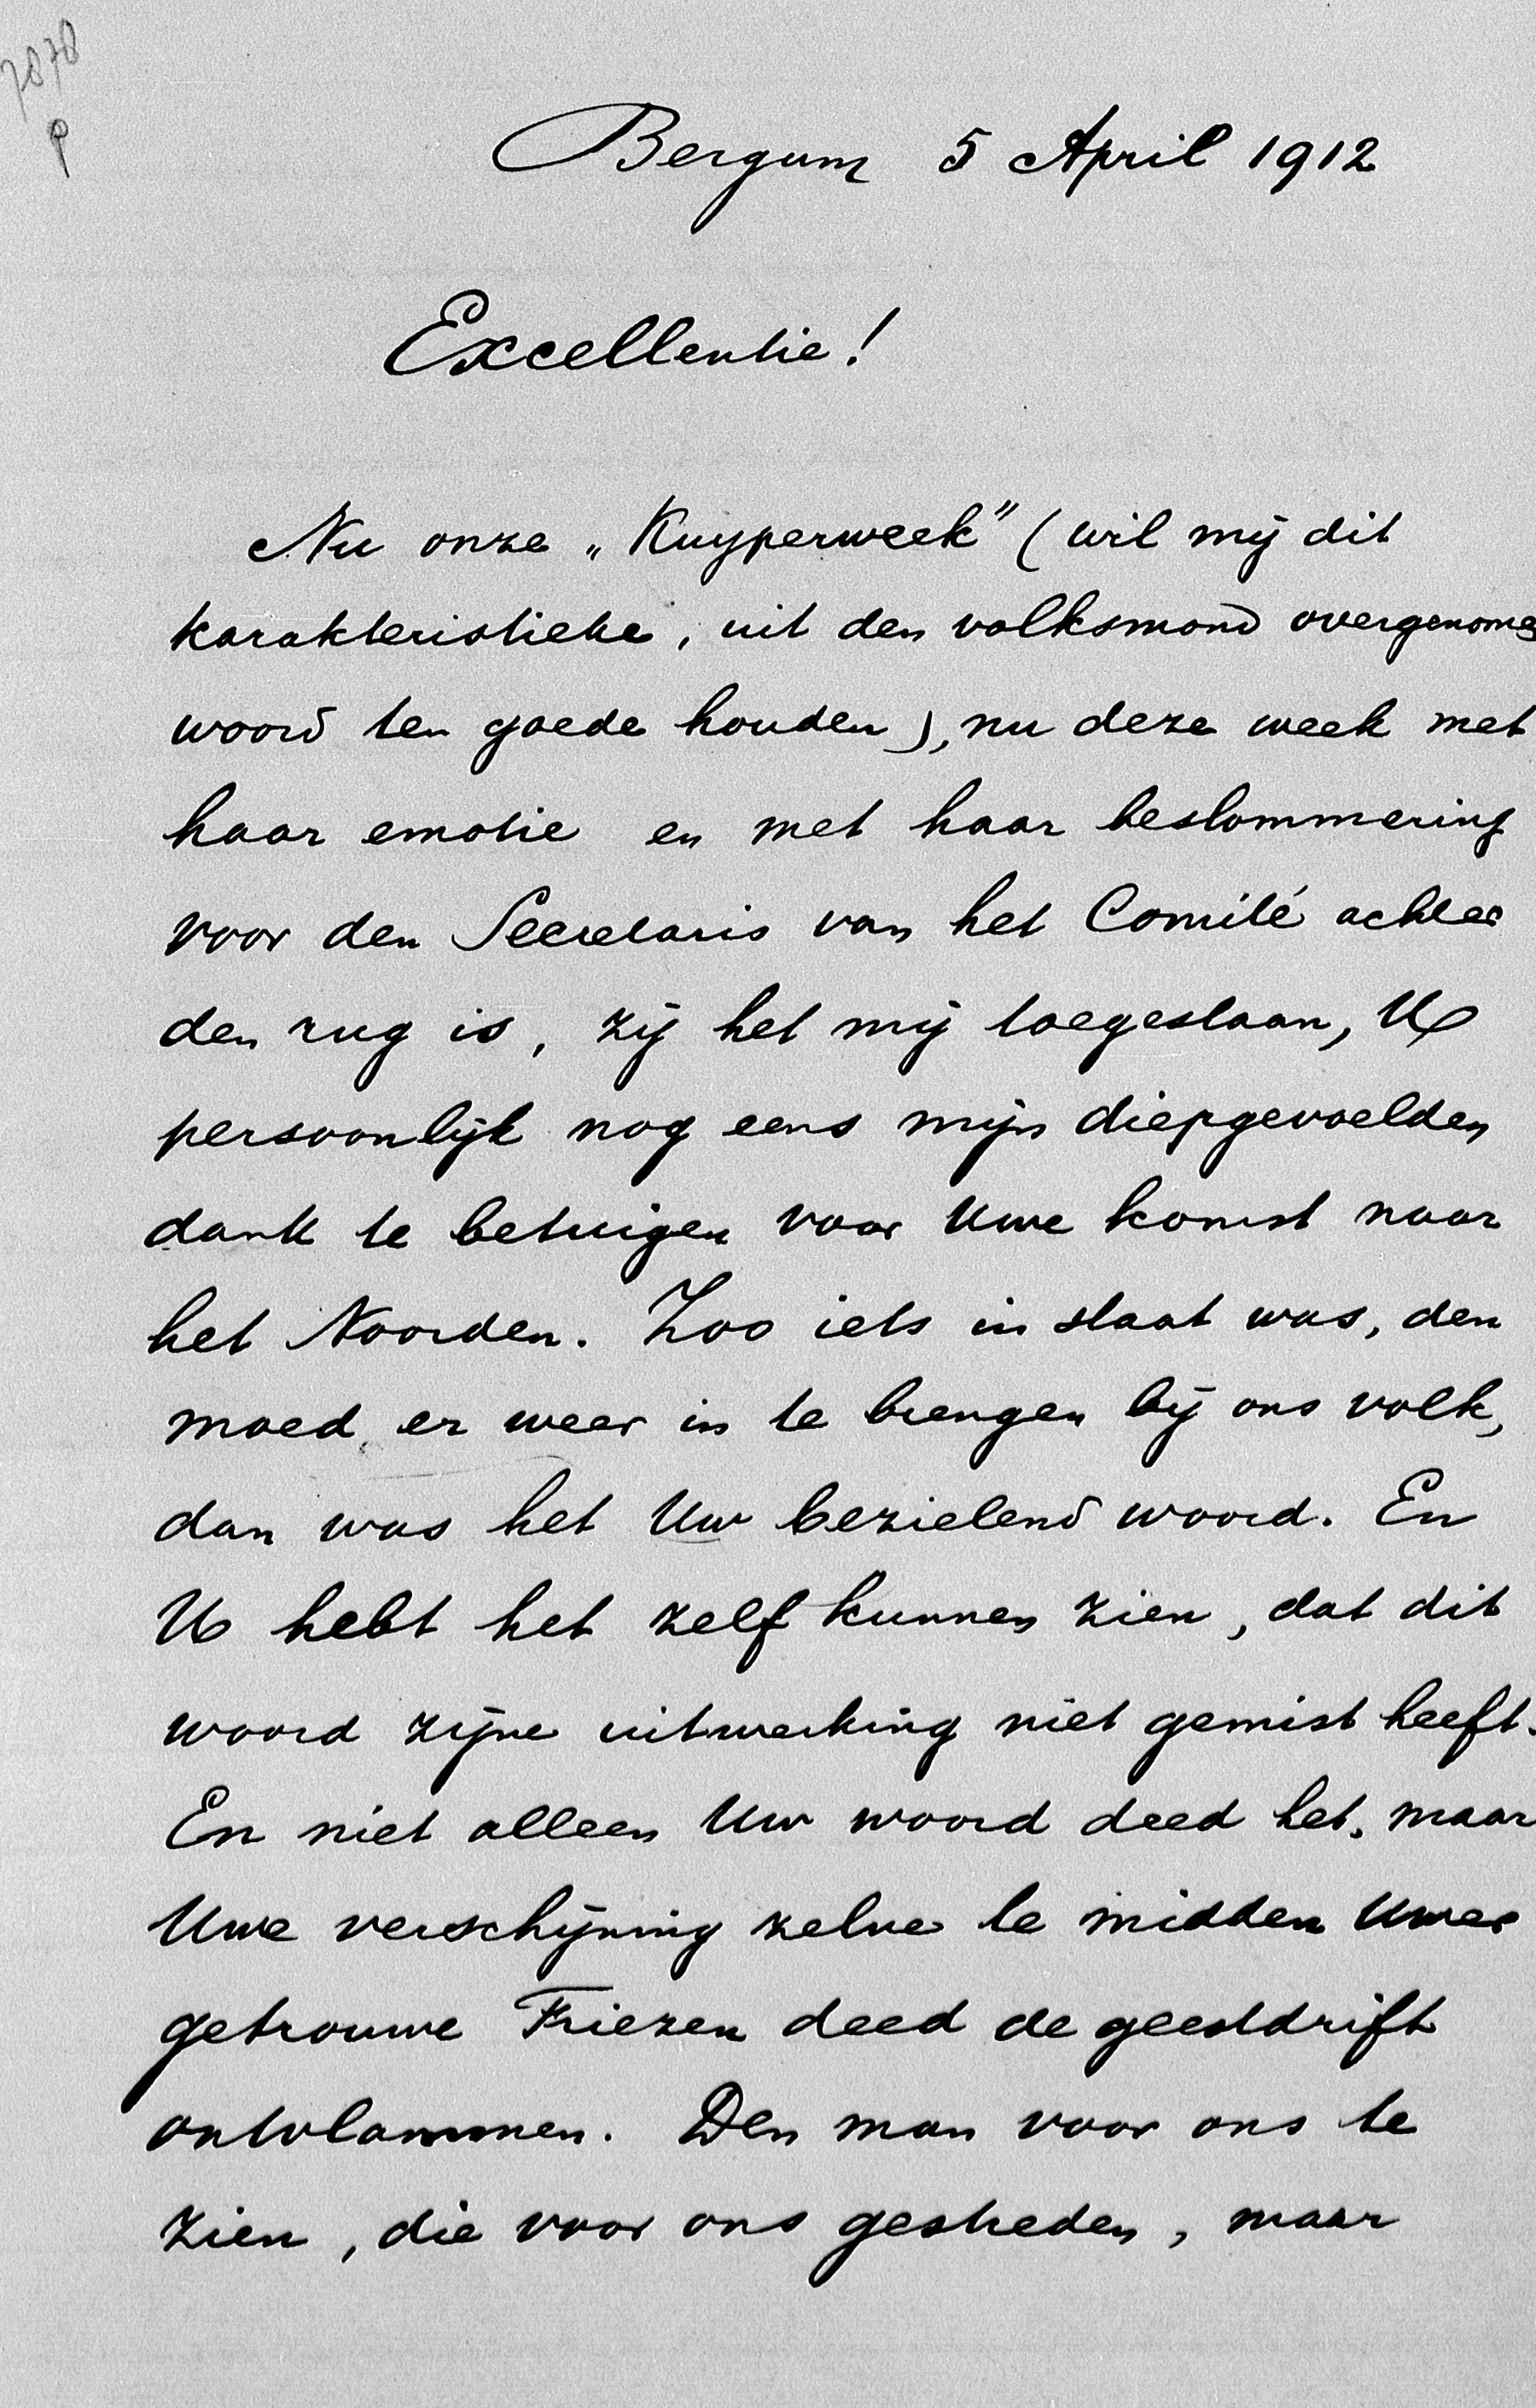 7878
P
Bergum 5 April 1912
Excellentie!
Nu onze „Kuyperweek" (wil mij dit
karakteristieke, uit den volksmond overgenomen
woord ten goede houden), nu deze week met
haar emotie en met haar beslommering
voor den Secretaris van het Comité achter
den rug is, zij het mij toegestaan, U
persoonlijk nog eens mijn diepgevoelden
dank te betuigen voor Uwe komst naar
het Noorden. Zoo iets in staat was, den
moed er weer in te brengen bij ons volk,
dan was het Uw bezielend woord. En
U hebt het zelf kunnen zien, dat dit
woord zijne uitwerking niet gemist heeft.
En niet alleen Uw woord deed het, maar
Uwe verschijning zelve te midden Uwer
getrouwe Friezen deed de geestdrift
ontvlammen. Den man voor ons te
zien, die voor ons gestreden, maar